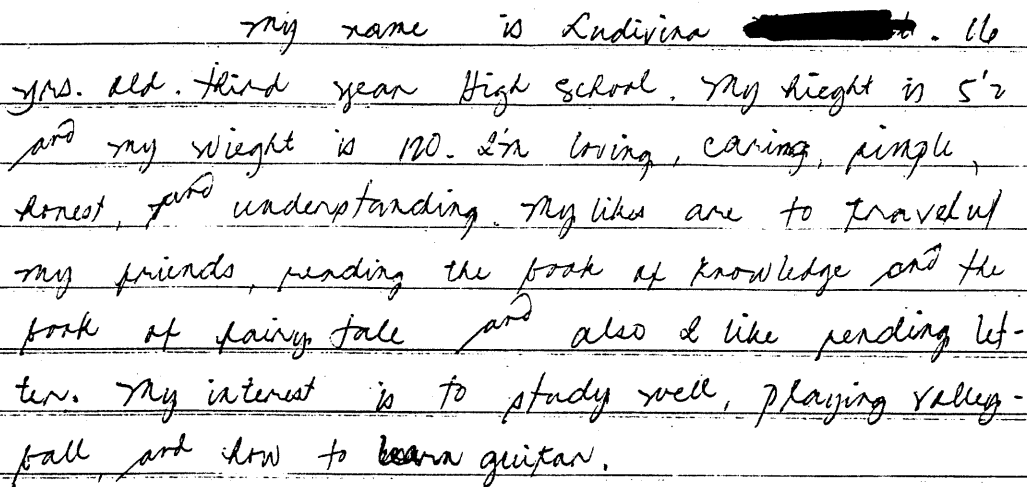 My name is Ludivina . 16
yrs. old. third year High School. My hieght is 5'2
and my wieght is 120. I'm loving, caring, simple,
honest, and understanding. My likes are to travel w/
my friends, reading the book of knowledge and the
book of fairy tale and also I like sending let-
ter. My interest is to study well, playing valley-
ball, and how to learn guitar.